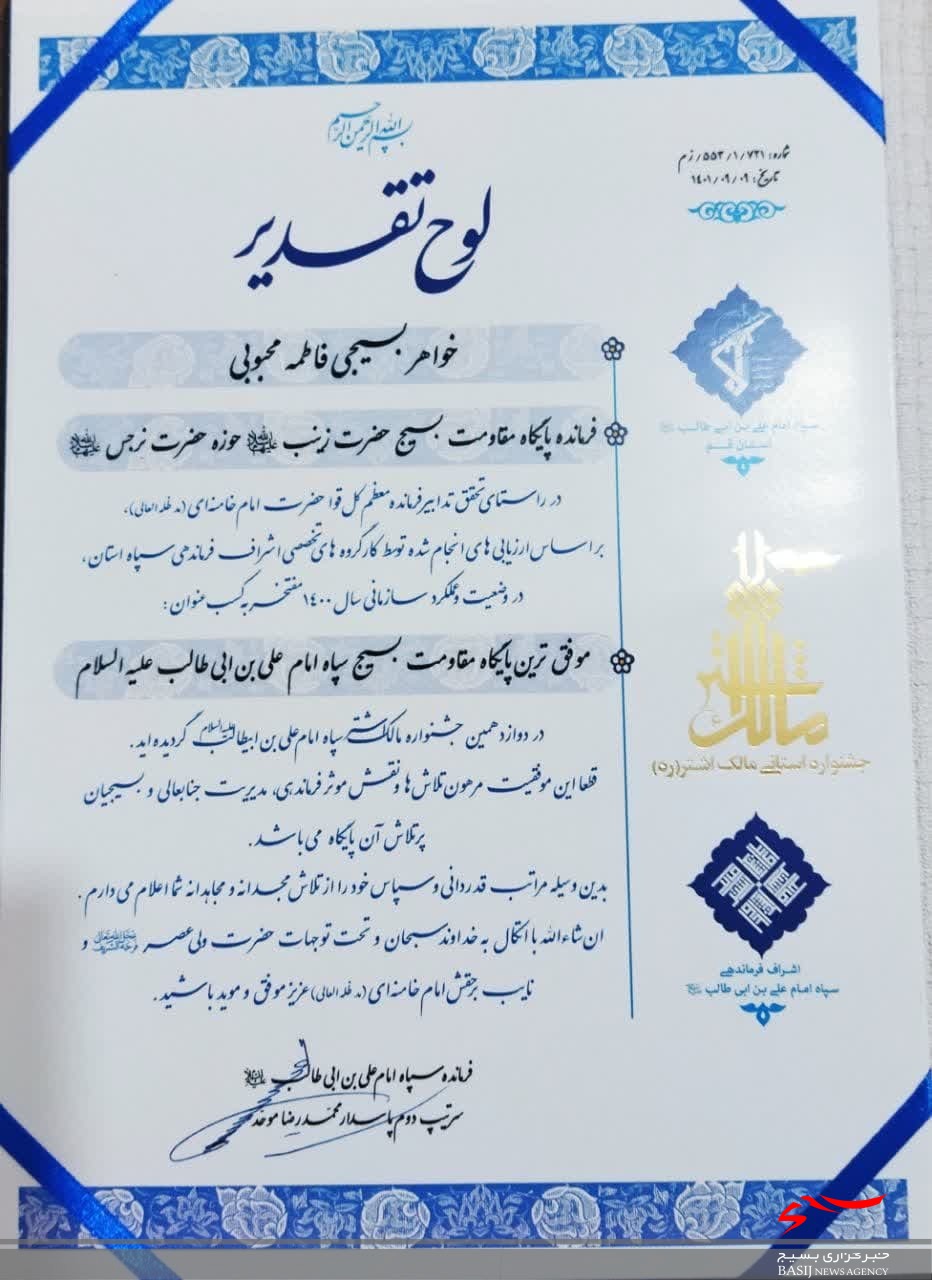 بسم الله الرحمن الرحیم
شماره: ۵۵۳/۱/۷۲۱/ز م
تاریخ: ۱۴۰۱/۰۹/۰۹
لوح تقدیر
خواهر بسیجی فاطمه محبوبی
فرمانده پایگاه مقاومت بسیج حضرت زینب حوزه حضرت نرجس
در راستای تحقق تدابیر فرمانده معظم کل قوا حضرت امام خامنه‌ای (مد ظله العالی)،
براساس ارزیابی های انجام شده توسط کارگروه های تخصصی اشراف فرماندهی سپاه استان،
در وضعیت و عملکرد سازمانی سال ۱۴۰۰ مفتخر به کسب عنوان :
موفق ترین پایگاه مقاومت بسیج سپاه امام علی بن ابی طالب علیه السلام
در دوازدهمین جشنواره مالک اشتر سپاه امام علی بن ابیطالب علیه‌السلام گردیده اید.
قطعا این موفقیت مرهون تلاش ها و نقش موثر فرماندهی، مدیریت جنابعالی و بسیجیان
پرتلاش آن پایگاه می باشد.
بدین وسیله مراتب قدردانی و سپاس خود را از تلاش مجدانه و مجاهدانه شما اعلام می دارم.
ان شاءالله با اتکال به خداوند سبحان و تحت توجهات حضرت ولی عصر و
نایب برحقش امام خامنه‌ای (مد ظله العالی) عزیز موفق و موید باشید.
فرمانده سپاه امام علی بن ابی طالب
سرتیپ دوم پاسدار محمدرضا موحد
سپاه امام علی بن ابی طالب
استان قم
مالک اشتر
جشنواره استانی مالک اشتر(ره)
اشراف فرماندهی
سپاه امام علی بن ابی طالب
بسیج
خبرگزاری بسیج
BASIJ NEWS AGENCY